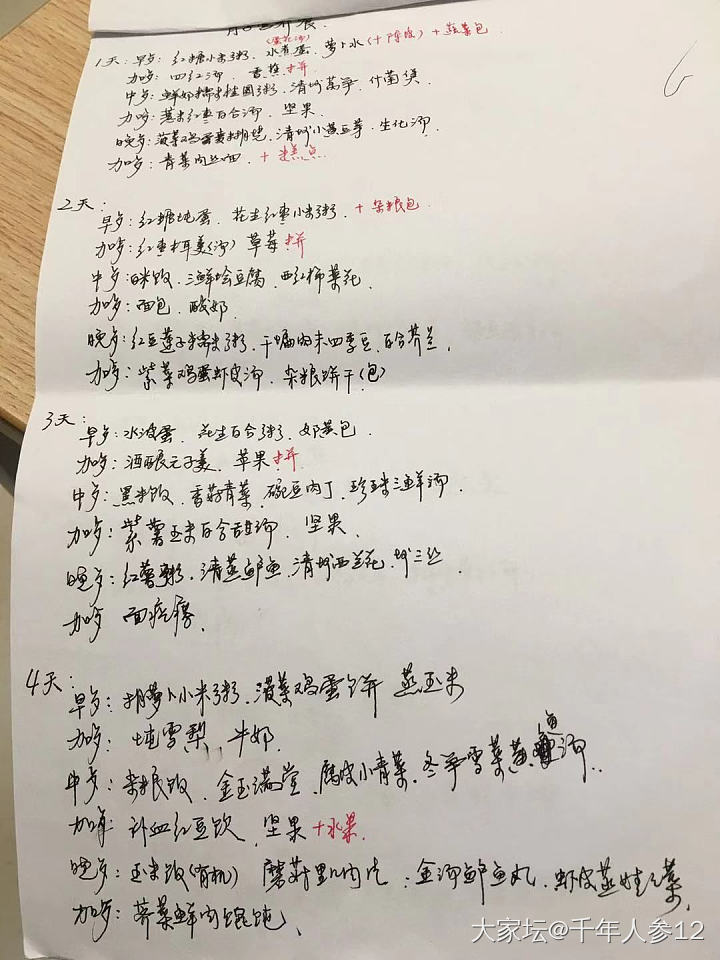 1天: 早歺: 红糖小米粥. 水煮蛋. 萝卜水(+陈皮) + 蔬菜包
加歺: 四红汤. 香蕉拼
中歺: 鲜奶糯米桂圆粥. 清炒莴笋. 什菌煲
加歺: 薏米红枣百合汤. 坚果.
晚歺: 菠菜鸡蛋 清炒小黄豆芽. 生化汤.
加歺: 青菜肉丝面. +
2天:
早歺: 红糖炖蛋. 花生红枣小米粥. + 杂粮包
加歺: 红枣木耳羹(汤) 草莓拼
中歺: 白米饭. 三鲜烩豆腐. 西红柿菜花.
加歺: 面包. 酸奶.
晚歺: 红豆莲子糯米粥. 干煸肉末四季豆. 百合芥兰.
加歺: 紫菜鸡蛋虾皮汤. 杂粮饼干(包)
3天:
早歺: 水波蛋. 花生百合粥. 奶黄包.
加歺: 酒酿元子羹. 苹果拼
中歺: 黑米饭. 香菇青菜. 碗豆肉丁. 珍珠三鲜汤.
加歺: 紫薯玉米百合甜汤. 坚果.
晚歺: 红薯粥. 清蒸鲈鱼. 清炒西兰花. 炒三丝
加歺 面疙瘩.
4天:
早歺: 胡萝卜小米粥. 菠菜鸡蛋饼 蒸玉米
加歺: 炖雪梨. 牛奶.
中歺: 杂粮饭. 金玉满堂. 腐皮小青菜. 冬笋雪菜黄鱼汤.
加歺: 补血红豆饮. 坚果 + 水果.
晚歺: 玉米饭(有机) 蘑菇里脊肉片. 金汤鲈鱼丸. 虾皮蒸娃娃菜.
加歺: 荠菜鲜肉馄饨.
大家坛@千年人参12